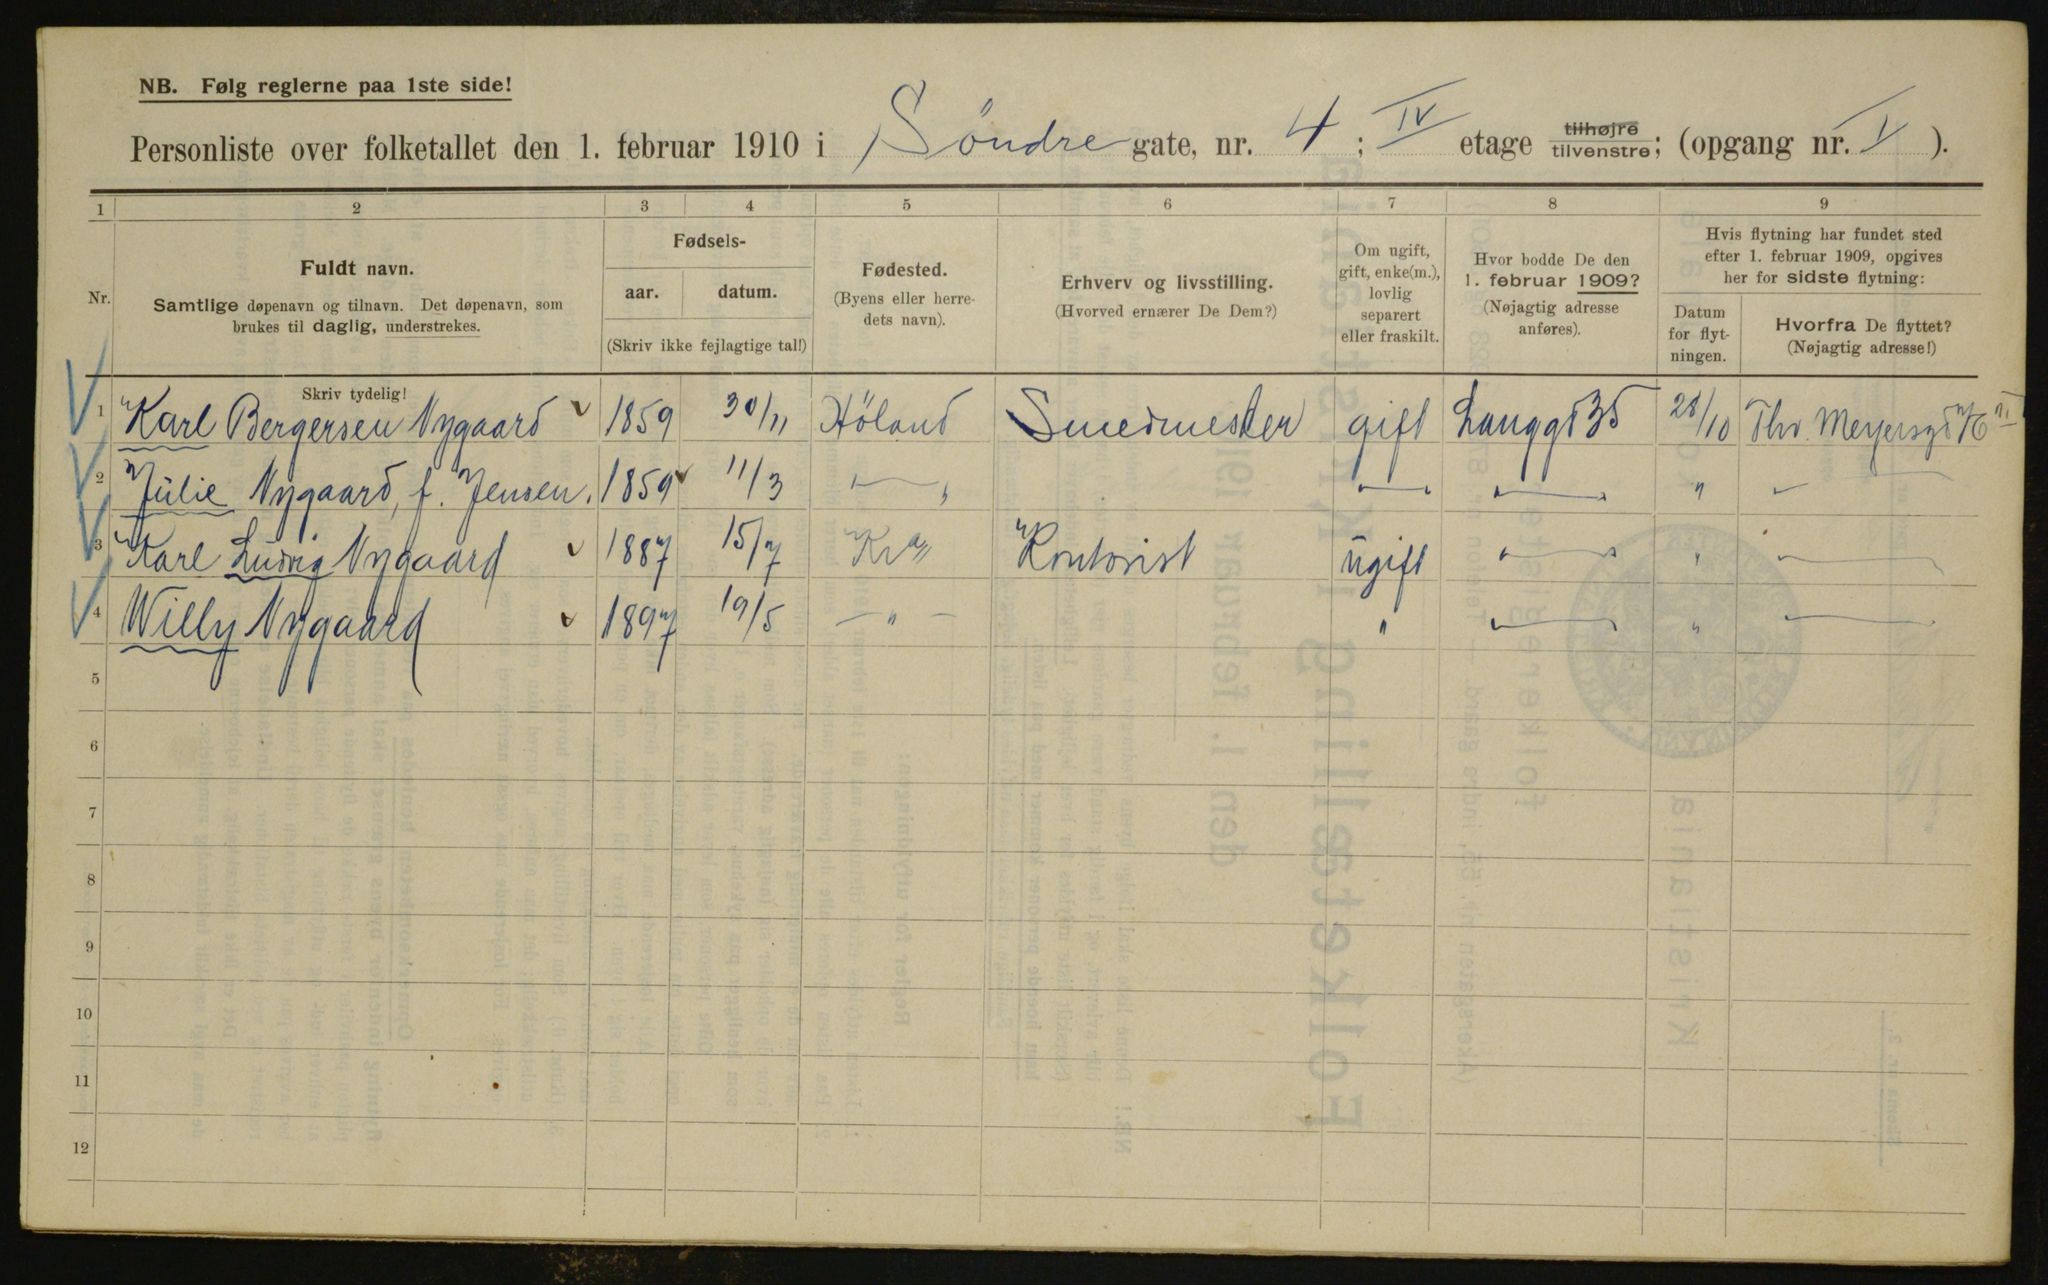 NB. Følg reglerne paa 1ste side!
Personliste over folketallet den 1. februar 1910 i Söndre gate, nr. 4; IV etage tilhøjre tilvenstre; (opgang nr. I ).
1 2 3 4 5 6 7 8 9
Nr.
Fuldt navn.
Samtlige døpenavn og tilnavn. Det døpenavn, som
brukes til daglig, understrekes.
Skriv tydelig!
Fødsels-
aar. datum.
(Skriv ikke fejlagtige tal!)
Fødested.
(Byens eller herre-
dets navn).
Erhverv og livsstilling.
(Hvorved ernærer De Dem?)
Om ugift,
gift, enke(m.),
lovlig
separert
eller fraskilt.
Hvor bodde De den
1. februar 1909?
(Nøjagtig adresse
anføres).
Hvis flytning har fundet sted
efter 1. februar 1909, opgives
her for sidste flytning:
Datum
for flyt-
ningen.
Hvorfra De flyttet?
(Nøjagtig adresse!)
1 Karl Bergersen Nygaard 1859 30/11 Höland Smedmester gift Langgd 35 28/10 Thv. Meyersgd
2 Julie Nygaard, f. Jensen. 1859 11/3 — „ — „ —
3 Karl Ludvig Nygaard 1887 15/7 Kra Kontorist ugift — „ —
4 Willy Nygaard 1897 19/5 — „ — „ — „ —
5
6
7
8
9
10
11
12